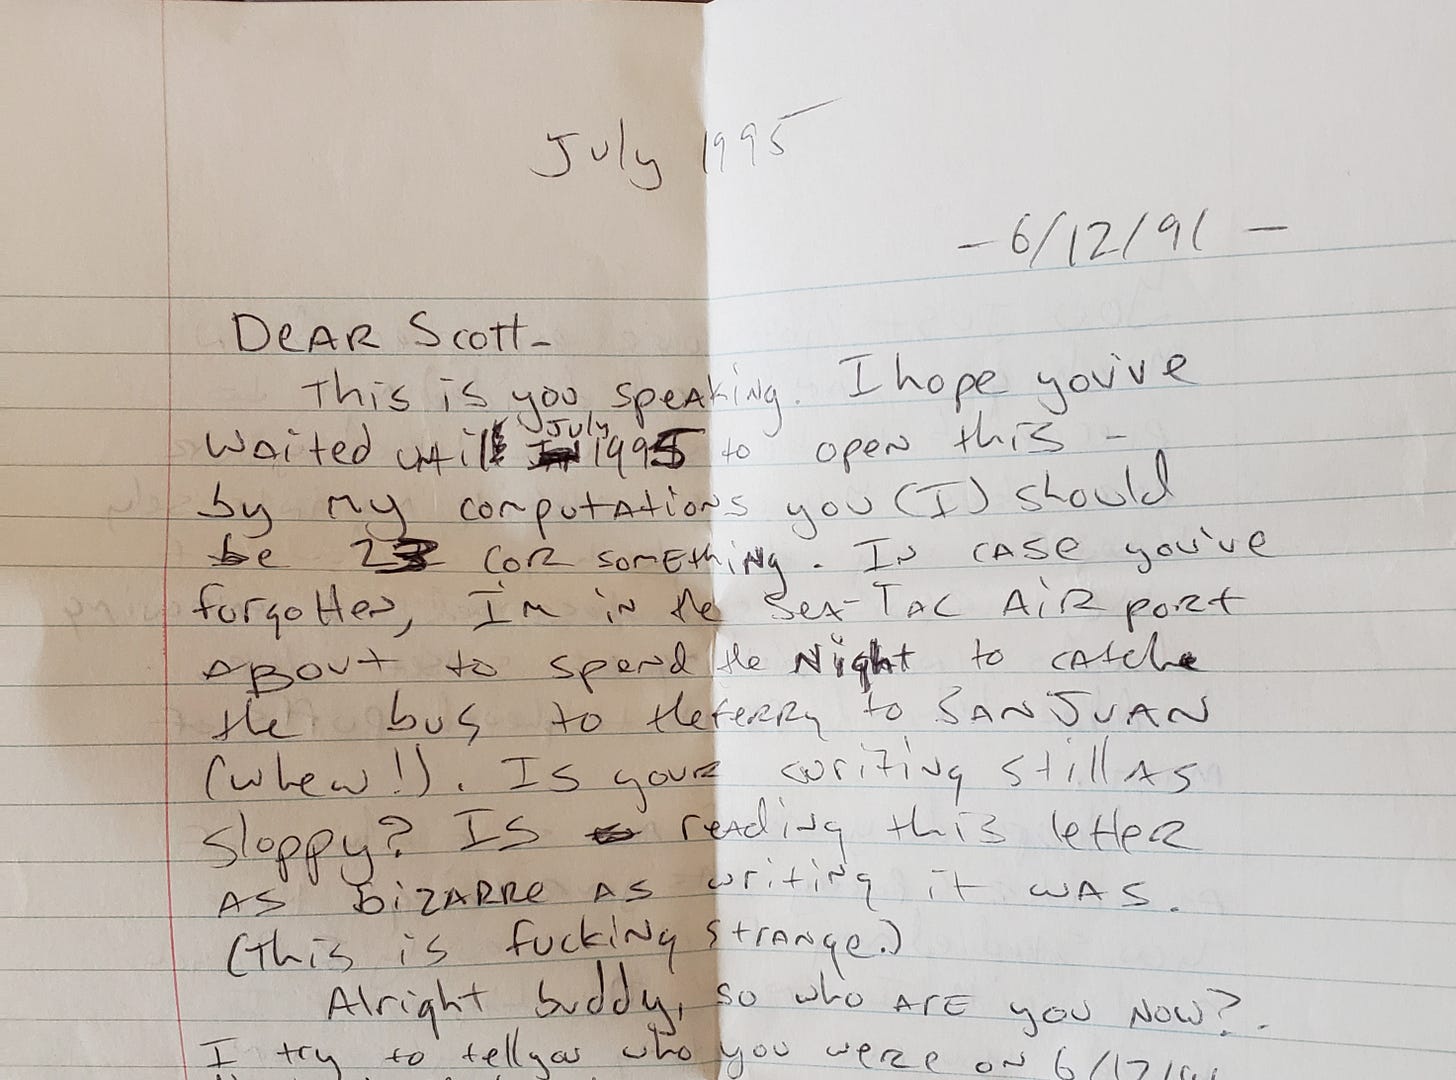 July 1995
- 6/12/91 -
Dear Scott-
This is you speaking. I hope you've
waited until July 1995 to open this -
by my computations you (I) should
be 23 (or something. In case you've
forgotten, I'm in the Sea-Tac Airport
about to spend the night to catch
the bus to the ferry to San Juan
(whew!). Is your writing still as
sloppy? Is reading this letter
as bizarre as writing it was.
(This is fucking strange.)
Alright buddy, so who are you now?.
I try to tell you who you were on 6/12/91